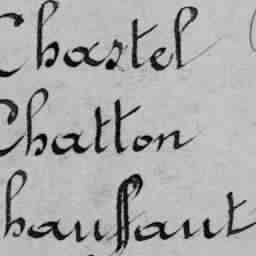 Chastel
Chatton
Chaussaut